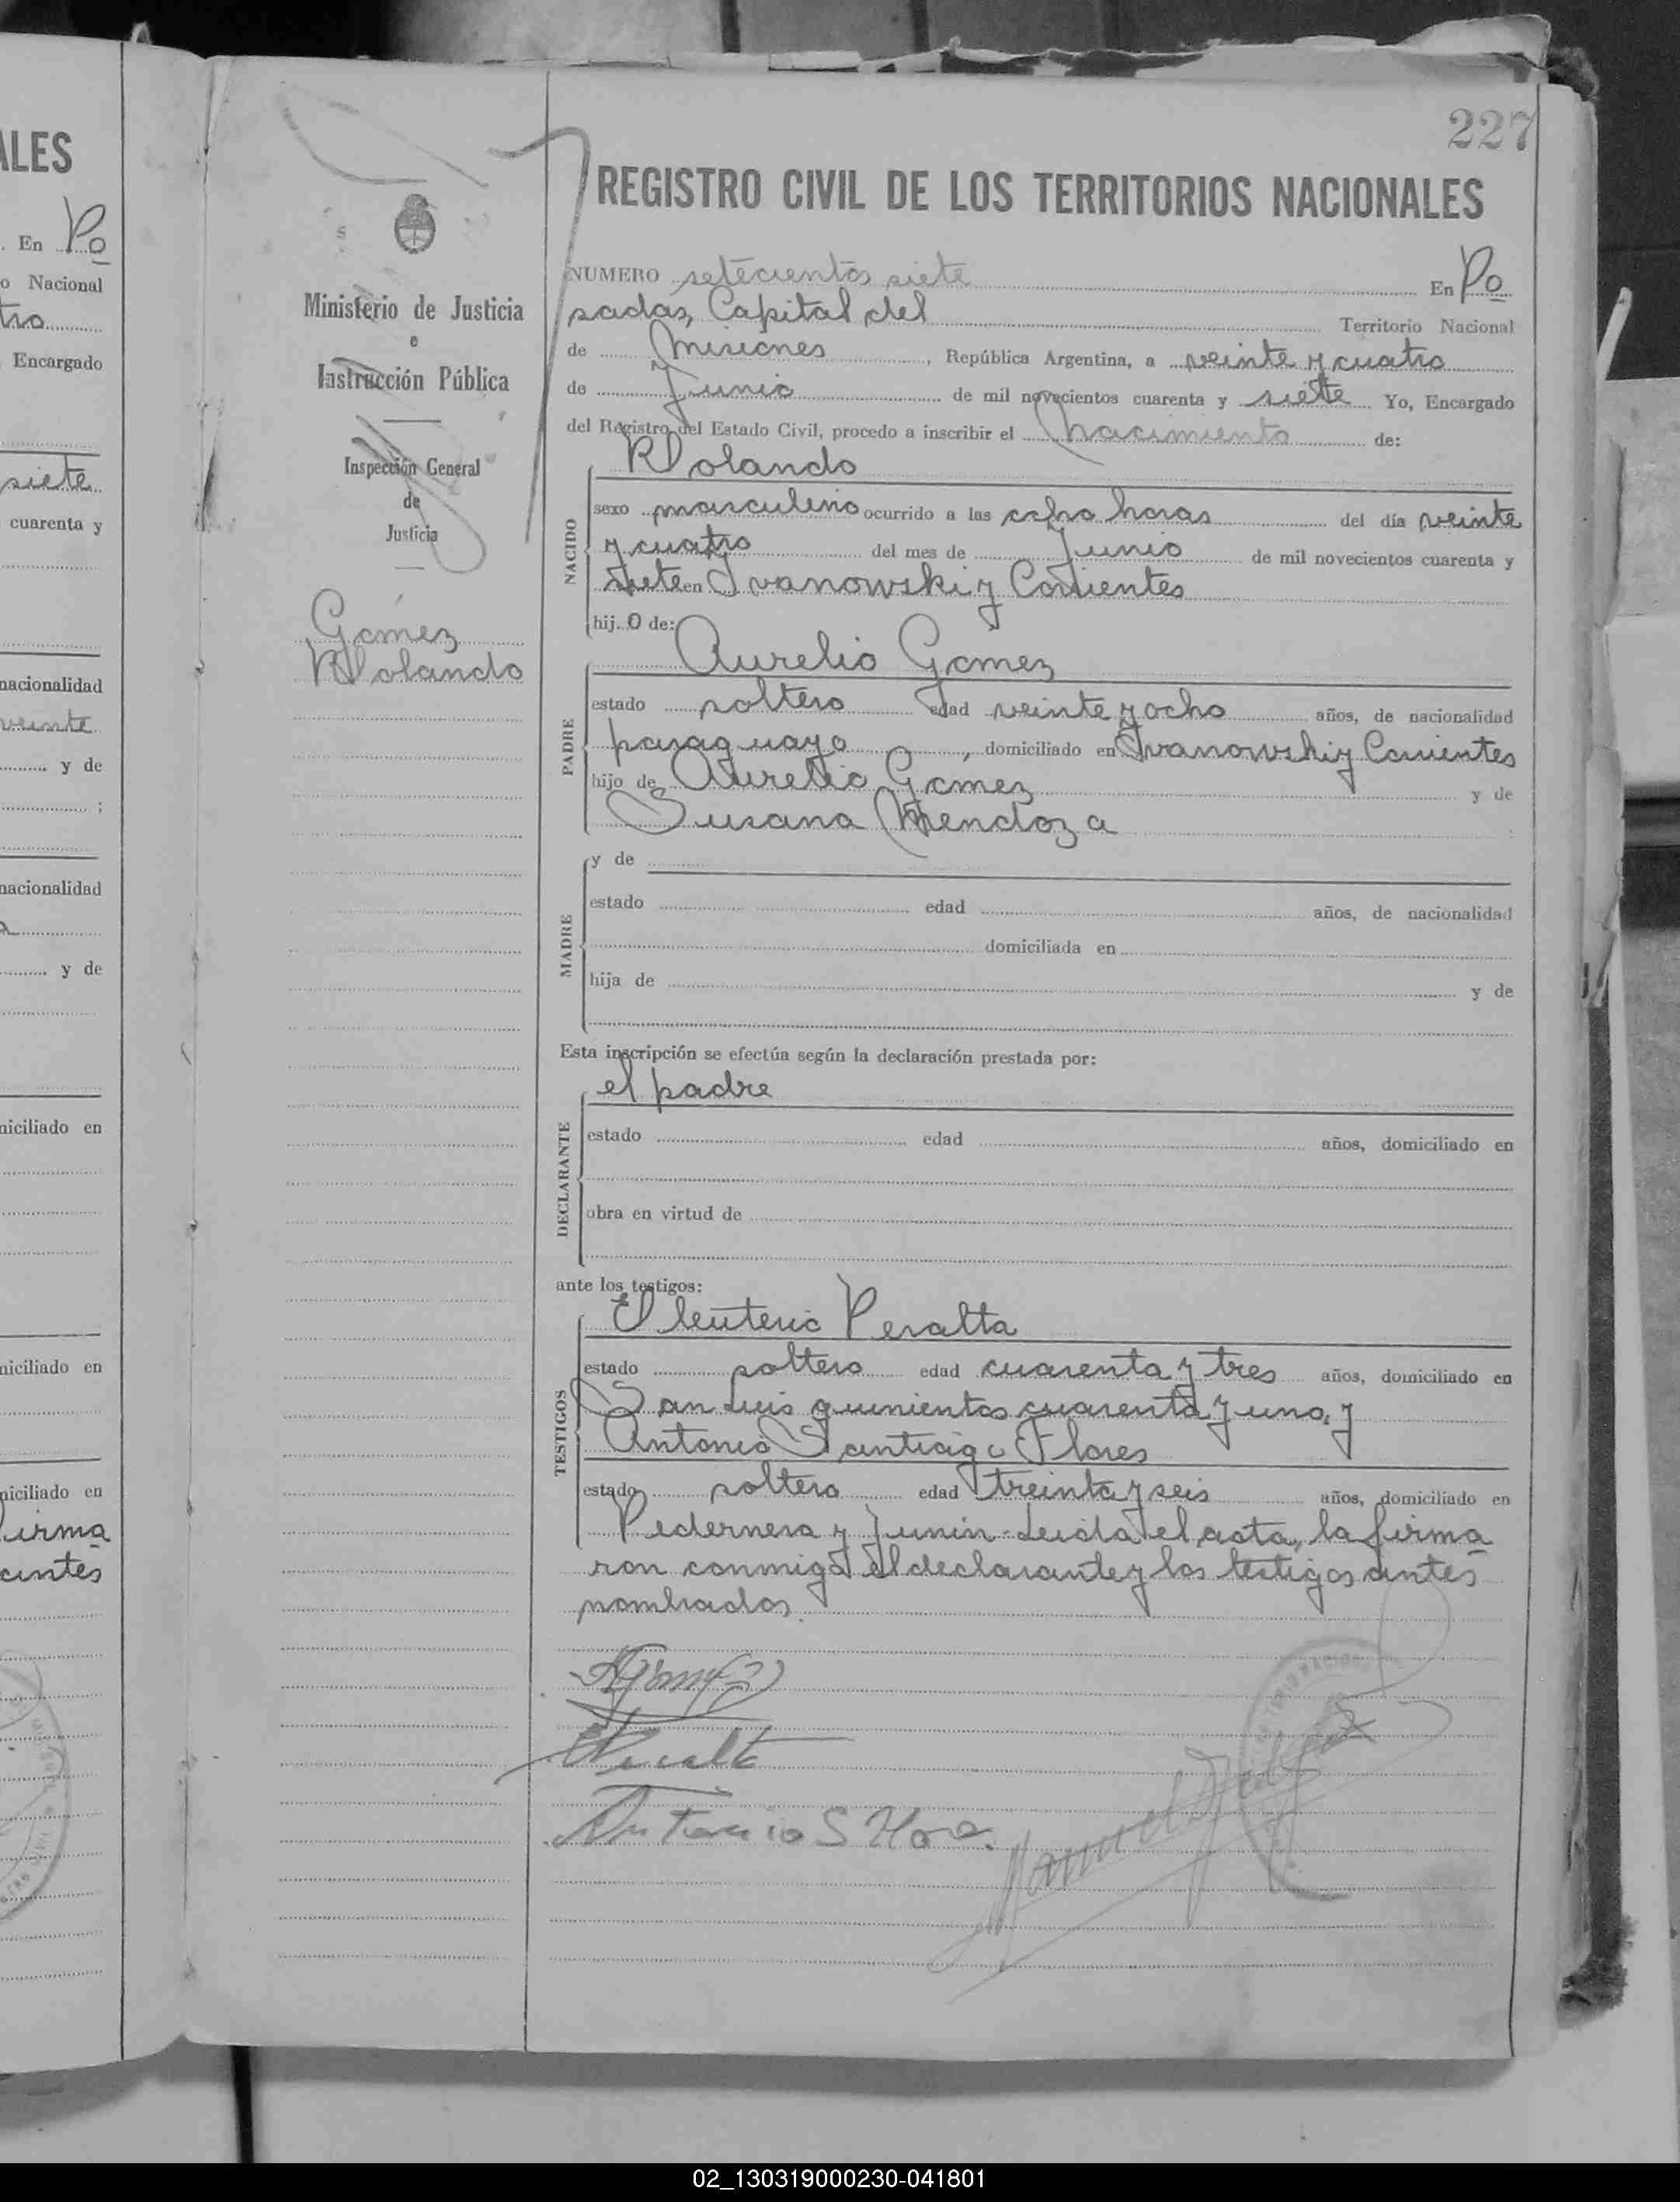 ALES
. En Po
o Nacional
tro
Encargado
siete
cuarenta y
nacionalidad
veinte
y de
;
nacionalidad
y de
niciliado en
niciliado en
niciliado en
firma
antes
227
Ministerio de Justicia
e
Instrucción Pública
Inspección General
de
Justicia
Gómez
Rolando
REGISTRO CIVIL DE LOS TERRITORIOS NACIONALES
NUMERO setecientos siete En Po
sadas, Capital del Territorio Nacional
de Misiones, República Argentina, a veinte y cuatro
de Junio de mil novecientos cuarenta y siete Yo, Encargado
del Registro del Estado Civil, procedo a inscribir el Nacimiento de:
Rolando
NACIDO
sexo masculino ocurrido a las ocho horas del día veinte
y cuatro del mes de Junio de mil novecientos cuarenta y
siete en Ivanowski y Corrientes
hij. o de:
Aurelio Gomez
PADRE
estado soltero edad veinte y ocho años, de nacionalidad
paraguayo, domiciliado en Ivanowski y Corrientes
hijo de Aurelio Gómez y de
Susana Mendoza
MADRE
y de
estado edad años, de nacionalidad
domiciliada en
hija de y de
Esta inscripción se efectúa según la declaración prestada por:
el padre
DECLARANTE
estado edad años, domiciliado en
obra en virtud de
ante los testigos:
Eleuterio Peralta
TESTIGOS
estado soltero edad cuarenta y tres años, domiciliado en
San Luis quinientos cuarenta y uno, y
Antonio Santiago Flores
estado soltero edad treinta y seis años, domiciliado en
Pedernera y Junín. Leida el acta, la firma
ron conmigo el declarante y los testigos antes
nombrados.
Peralta
Antonio S Flore
Manuel
02_130319000230-041801